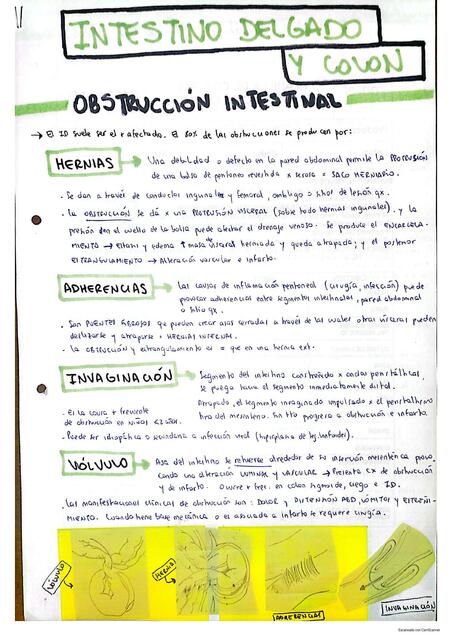 INTESTINO DELGADO
Y COLON
OBSTRUCCIÓN INTESTINAL
→ El ID suele ser el + afectado. El 80% de las obstrucciones se producen por:
HERNIAS → Una debilidad o defecto en la pared abdominal permite la PROTRUSIÓN
de una bolsa de peritoneo revestida x serosa = SACO HERNIARIO.
· Se dan a través de conductos inguinales y femoral, ombligo o sitios de lesión qx.
· La OBSTRUCCIÓN se dá x una PROTRUSIÓN VISCERAL (sobre todo hernias inguinales). y la
presión en el cuello de la bolsa puede afectar el drenaje venoso. Se produce el ENCARCELA-
MIENTO → Estasis y edema ↑ masa de visceral herniada y queda atrapada; y el posterior
ESTRANGULAMIENTO → Alteración vascular e infarto.
ADHERENCIAS → Las causas de inflamación peritoneal (cirugía, infección) puede
provocar adherencias entre segmentos intestinales, pared abdominal
o sitio qx.
· Son PUENTES FIBROSOS que pueden crear asas cerradas a través de las cuales otras vísceras pueden
deslizarse y atraparse = HERNIAS INTERNAS.
· La OBSTRUCCIÓN y estrangulamiento es = que en una hernia ext.
INVAGINACIÓN → Segmento del intestino constreñido x ondas peristálticas,
se pliega hacia el segmento inmediatamente distal.
Atrapado, el segmento invaginado impulsado x el peristaltismo
tira del mesenterio. Sin tto progresa a obstrucción e infarto.
· Es la causa + frecuente
de obstrucción en niños <2 años.
· Puede ser idiopática o secundaria a infección viral (hiperplasia de
VÓLVULO → Asa del intestino se retuerce alrededor de su inserción mesentérica provo-
cando una alteración LUMINAL y VASCULAR → Presenta cx de obstrucción
y de infarto. Ocurre + frec. en colon sigmoide, ciego e ID.
· Las manifestaciones clínicas de obstrucción son: DOLOR y DISTENSIÓN ABD, VÓMITOS y ESTREÑI-
MIENTO. Cuando tiene base mecánica o es asociada a infarto se requiere cirugía.
VÓLVULO
HERNIA
ADHERENCIAS
INVAGINACIÓN
Escaneado con CamScanner